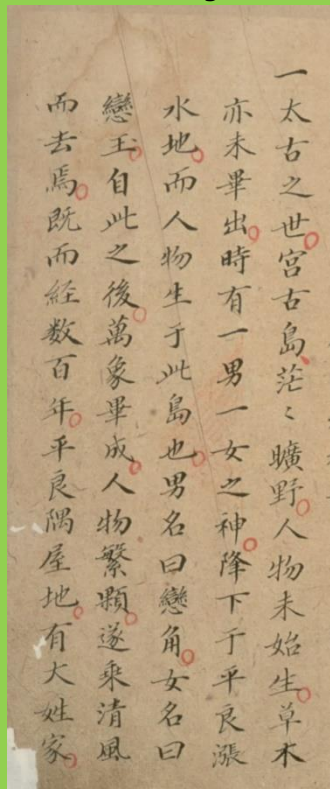 一太古之世宮古島茫〻曠野人物未始生草木
亦未畢出時有一男一女之神降下于平良漲
水地而人物生于此島也男名曰戀角女名曰
戀玉自此之後萬象畢成人物繁顆遂乘清風
而去焉既而経数百年平良隅屋地有大姓家